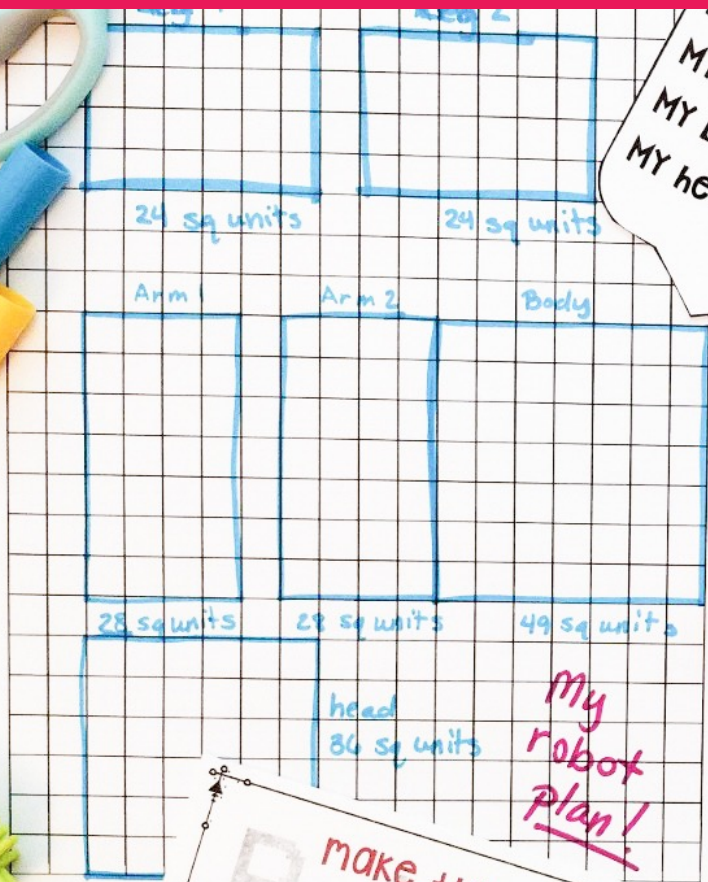 Leg 2
24 sq units
24 sq units
MY
MY he
Arm 1
Arm 2
Body
28 sq units
28 sq units
49 sq units
head
36 sq units
My
robot
plan!
make